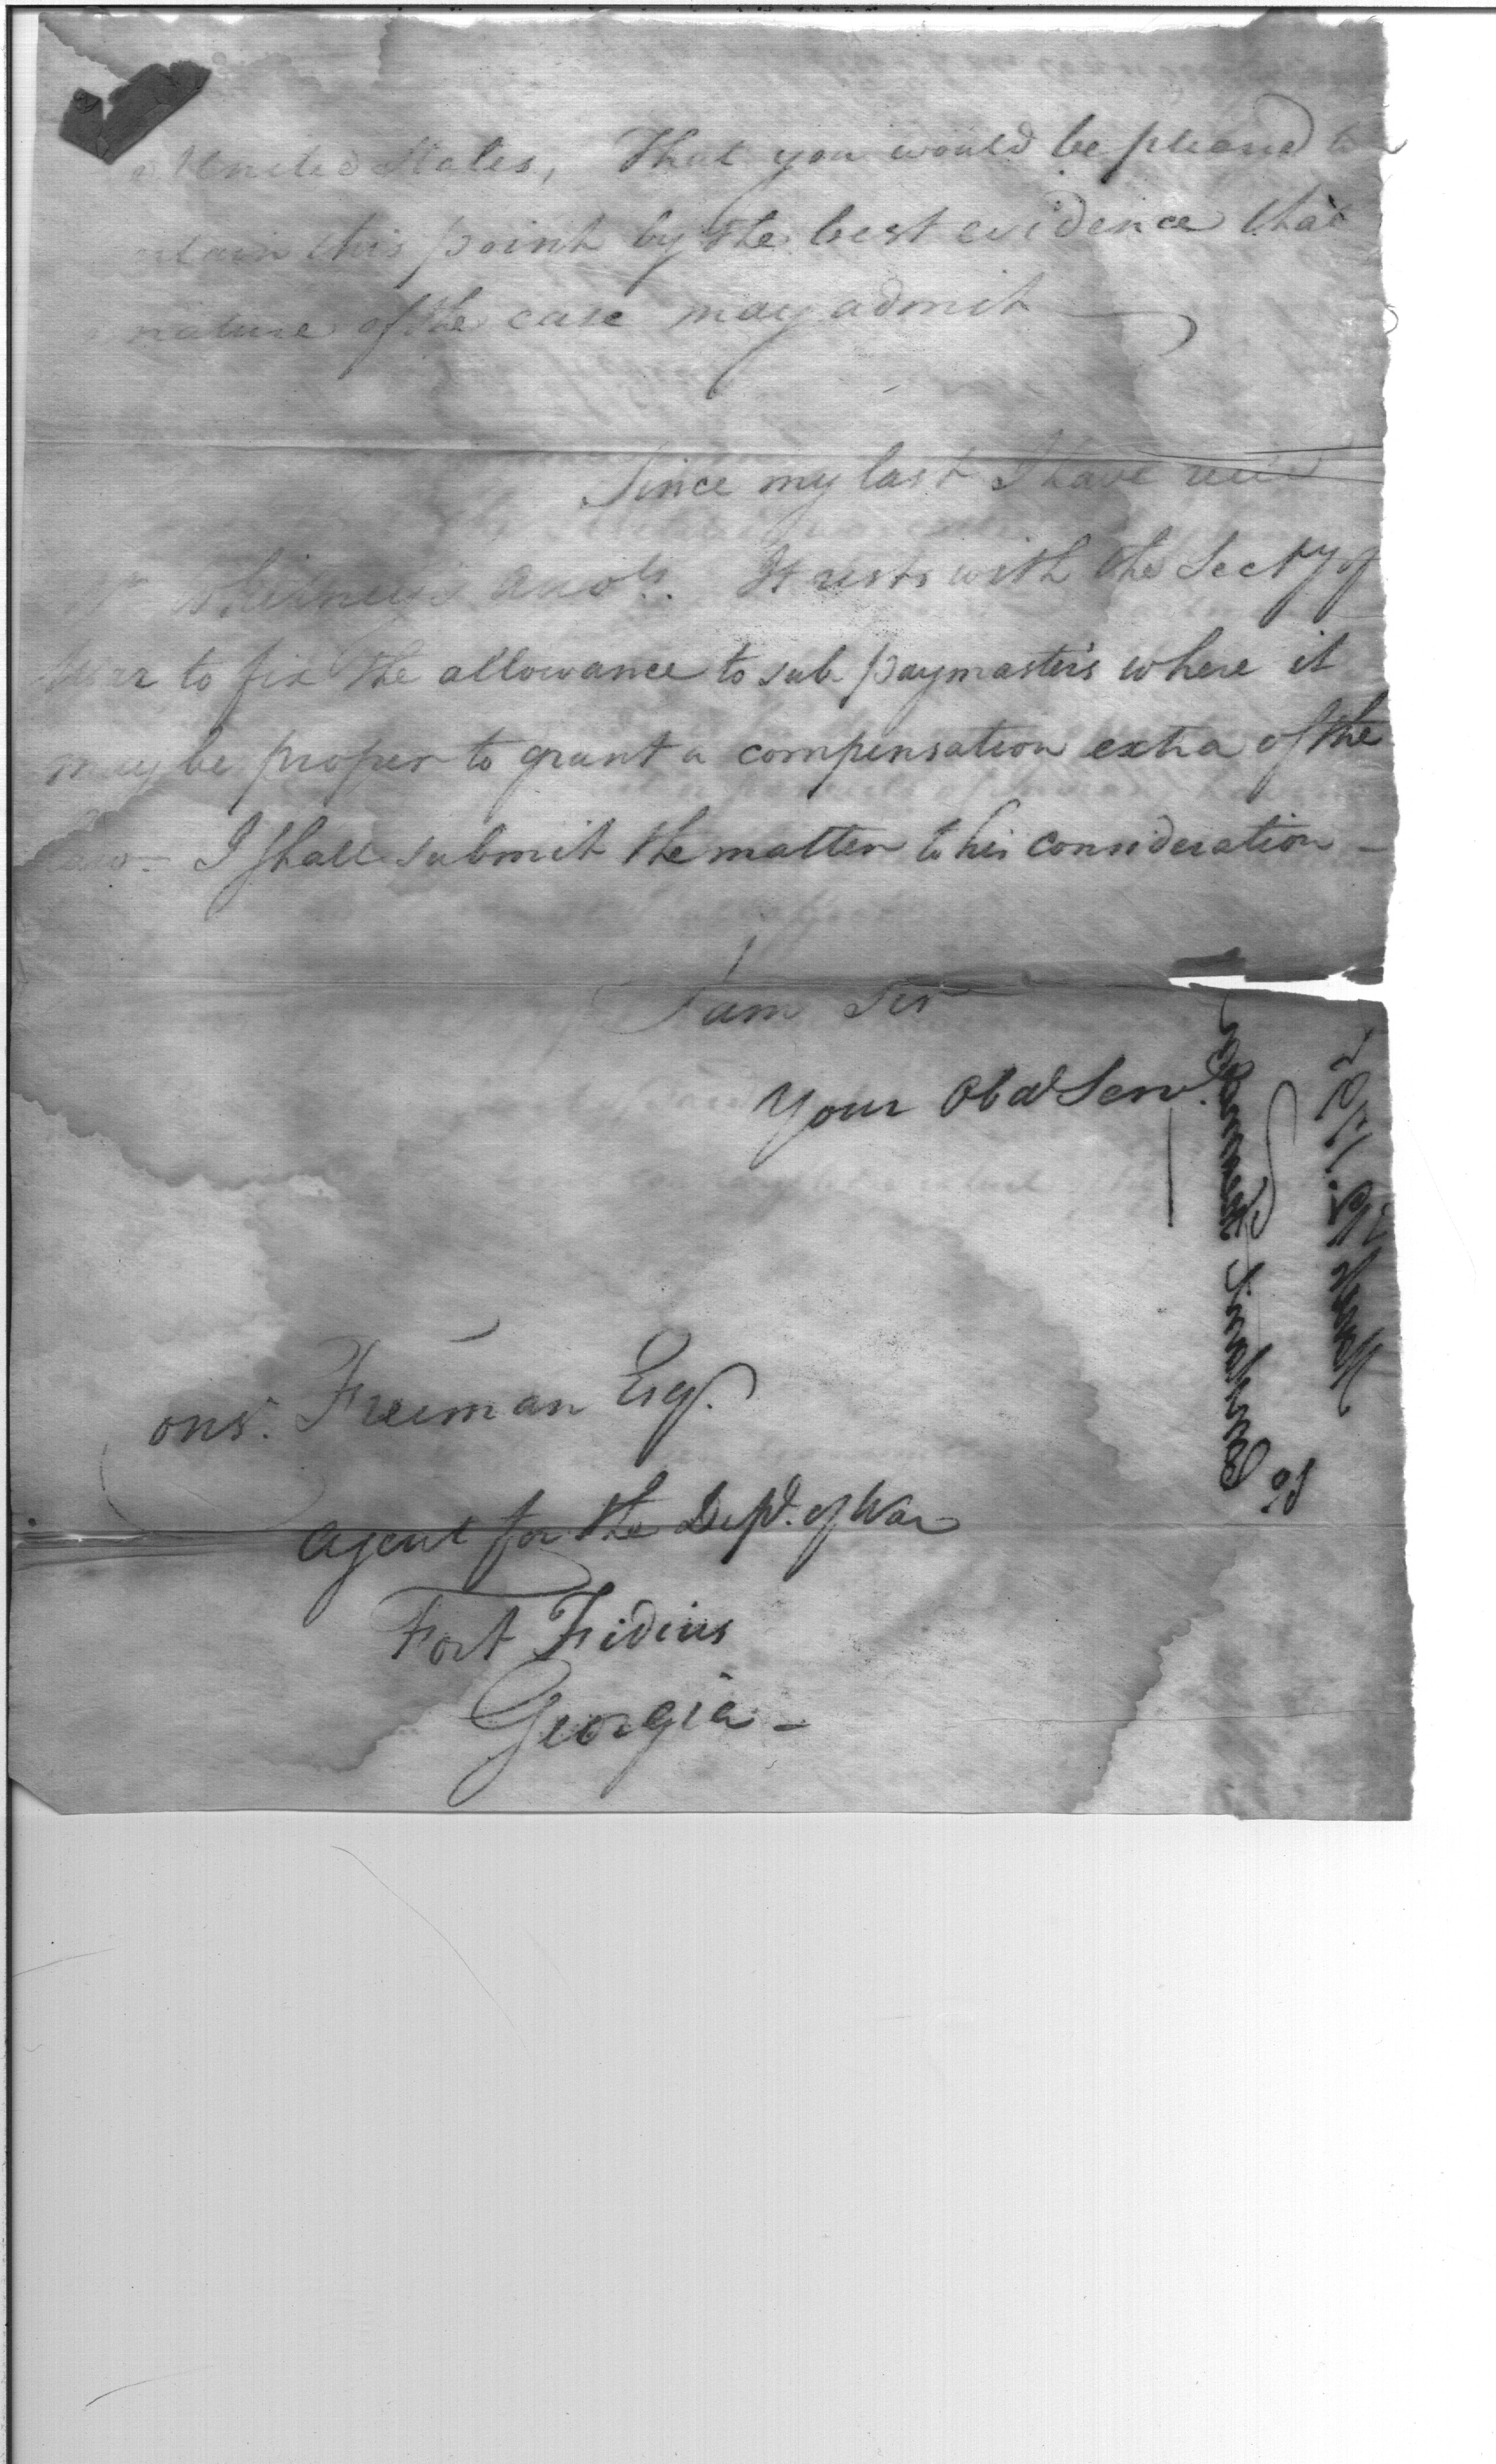 United States, That you would be pleased to
this point by the best evidence that
nature of the case may admit
Since my last I have recd
Accots. It rests with the Secty of
War to fix the allowance to sub paymasters where it
may be proper to grant a compensation extra of the
I shall submit the matter to his consideration -
I am Sir
Your Obd Servt.
ons. Freeman Esq.
Agent for the Dept. of War
Fort Fidius
Georgia -
Constant Freeman
March